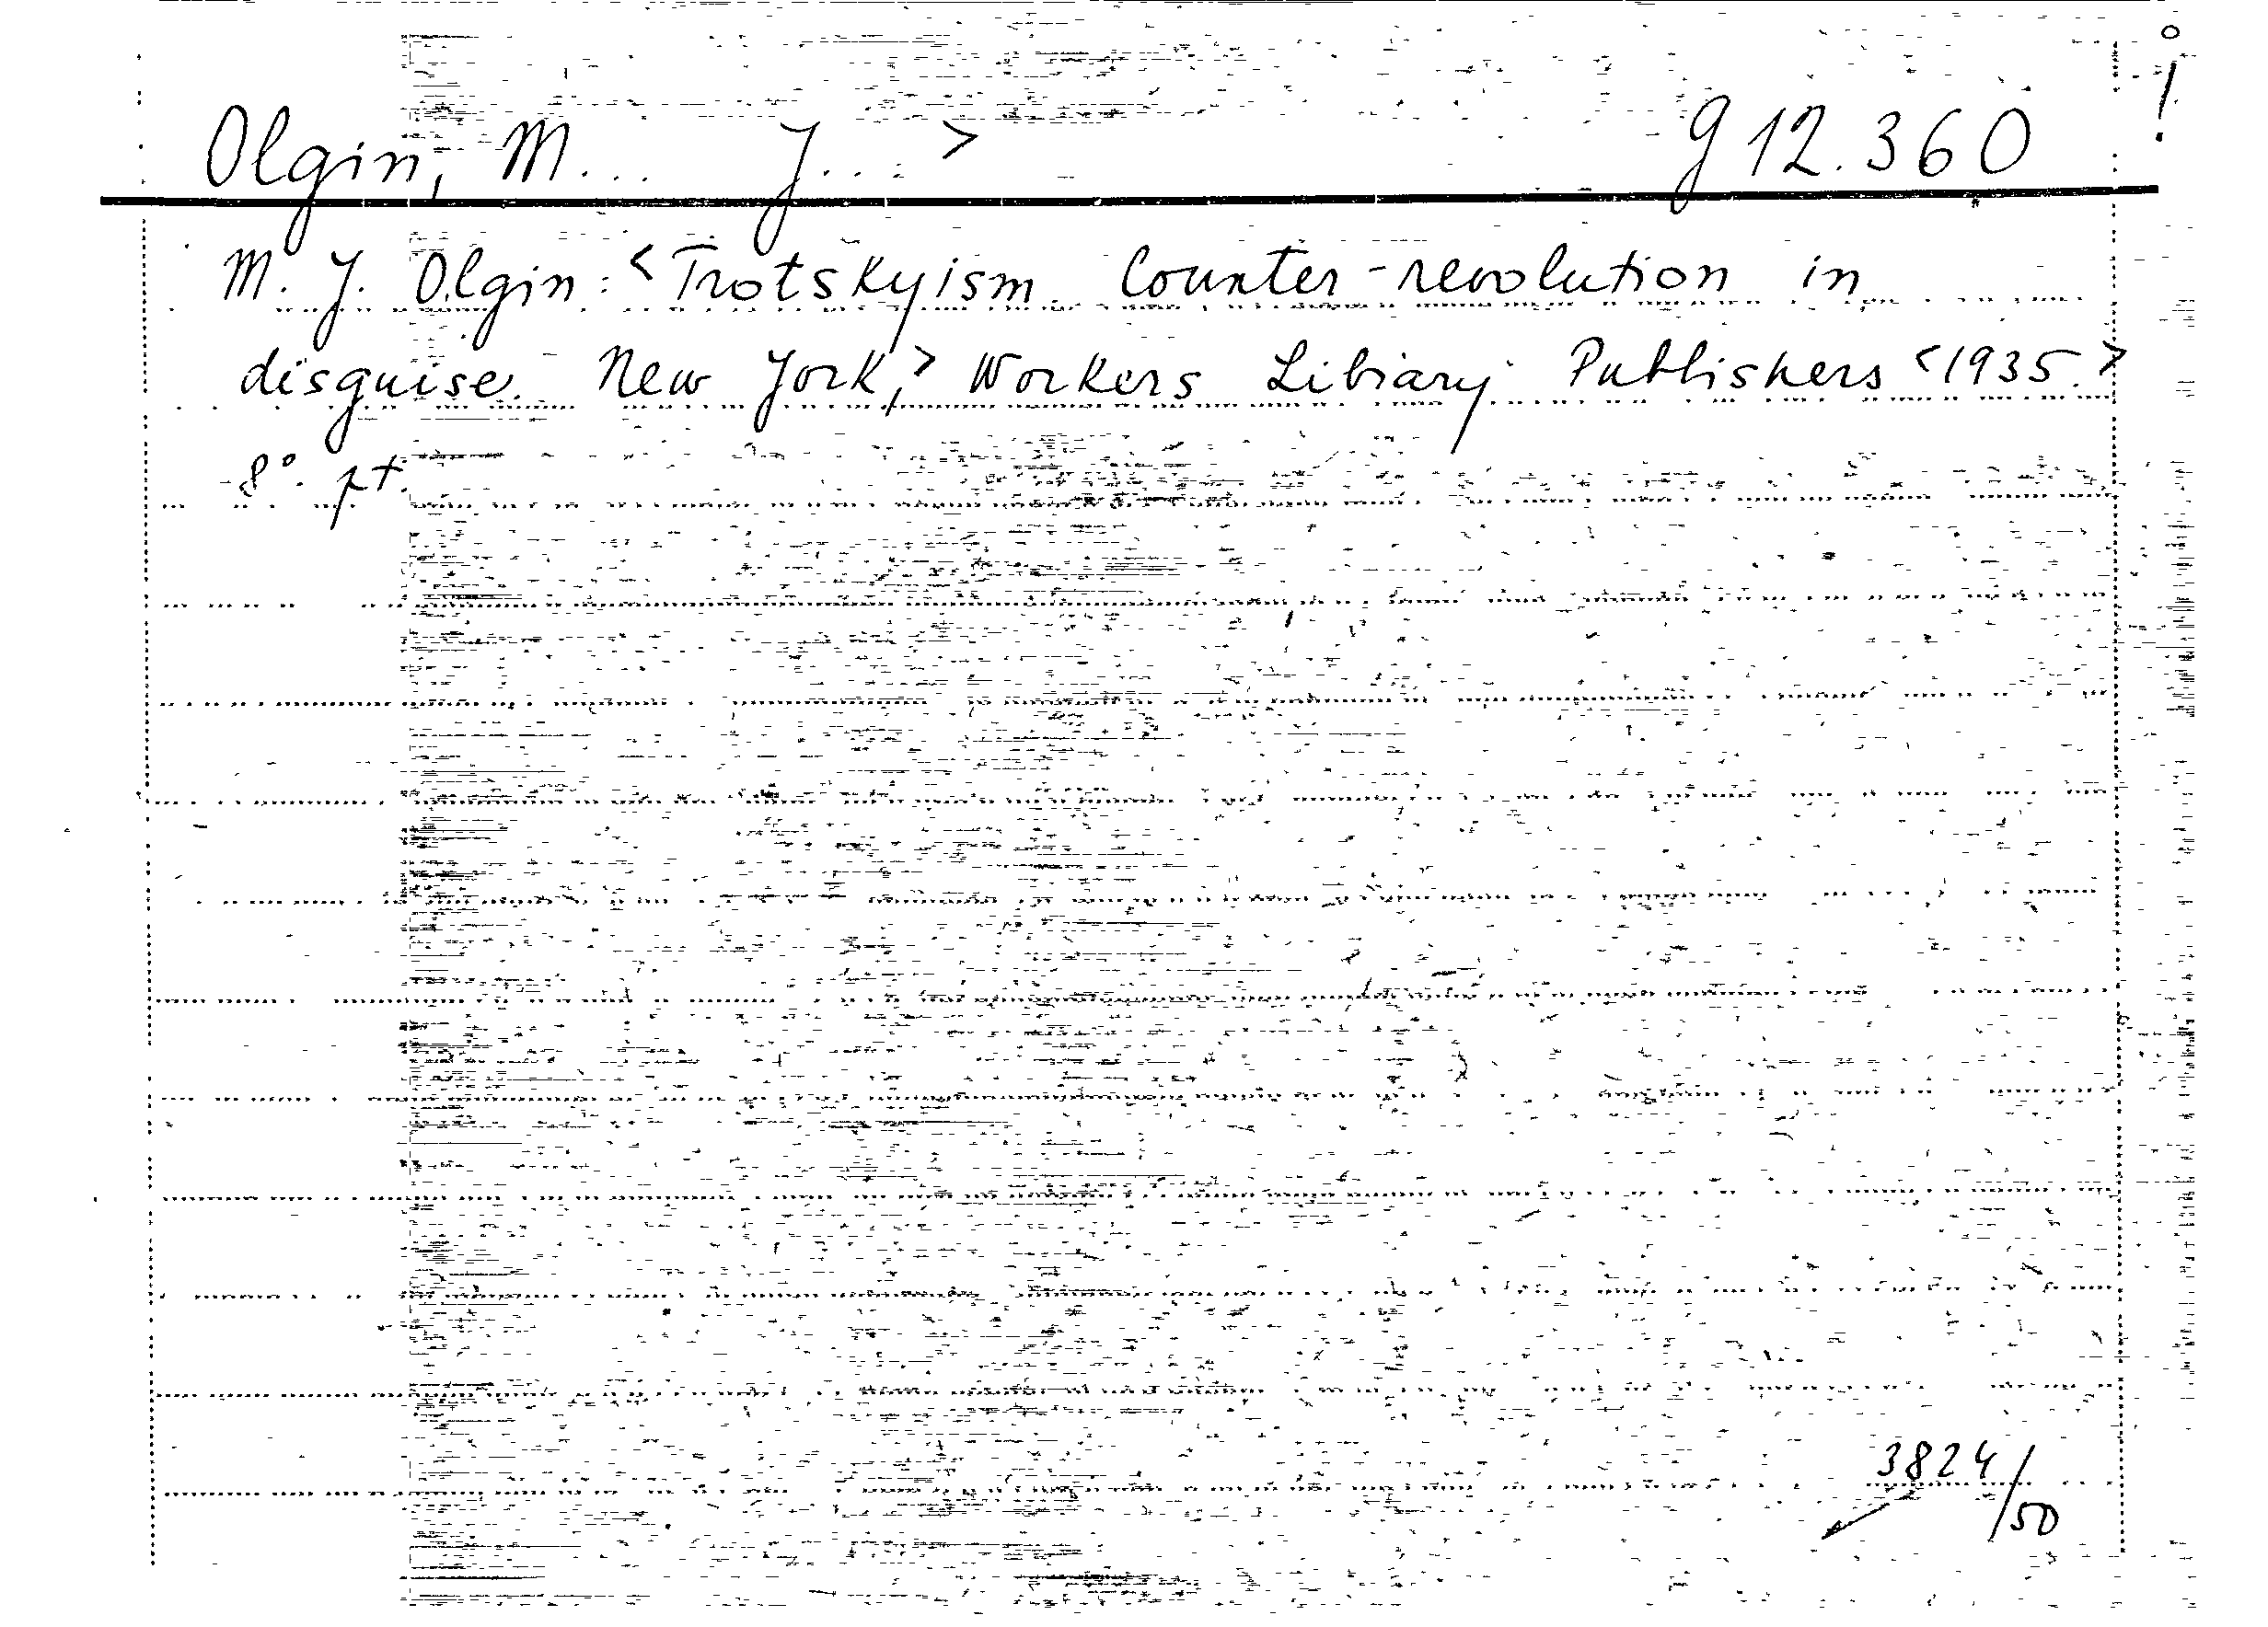 Olgin, M... J... > g 12.360 !
M. J. Olgin: <Trotskyism. Counter-revolution in
disguise. New York,> Workers Library Publishers <1935.>
8°. pt
3824/50